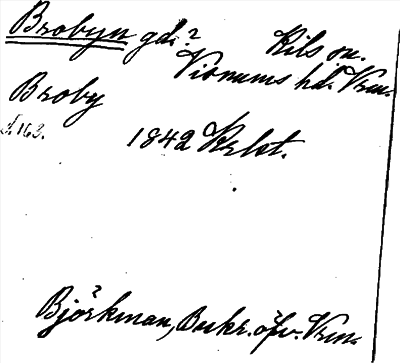 Brobyn gd.? Kils sn.
Visnums hd. Vrm.
Broby
s. 163.
1842 Krbt.
Björkman, Beskr. öfv. Vrm.